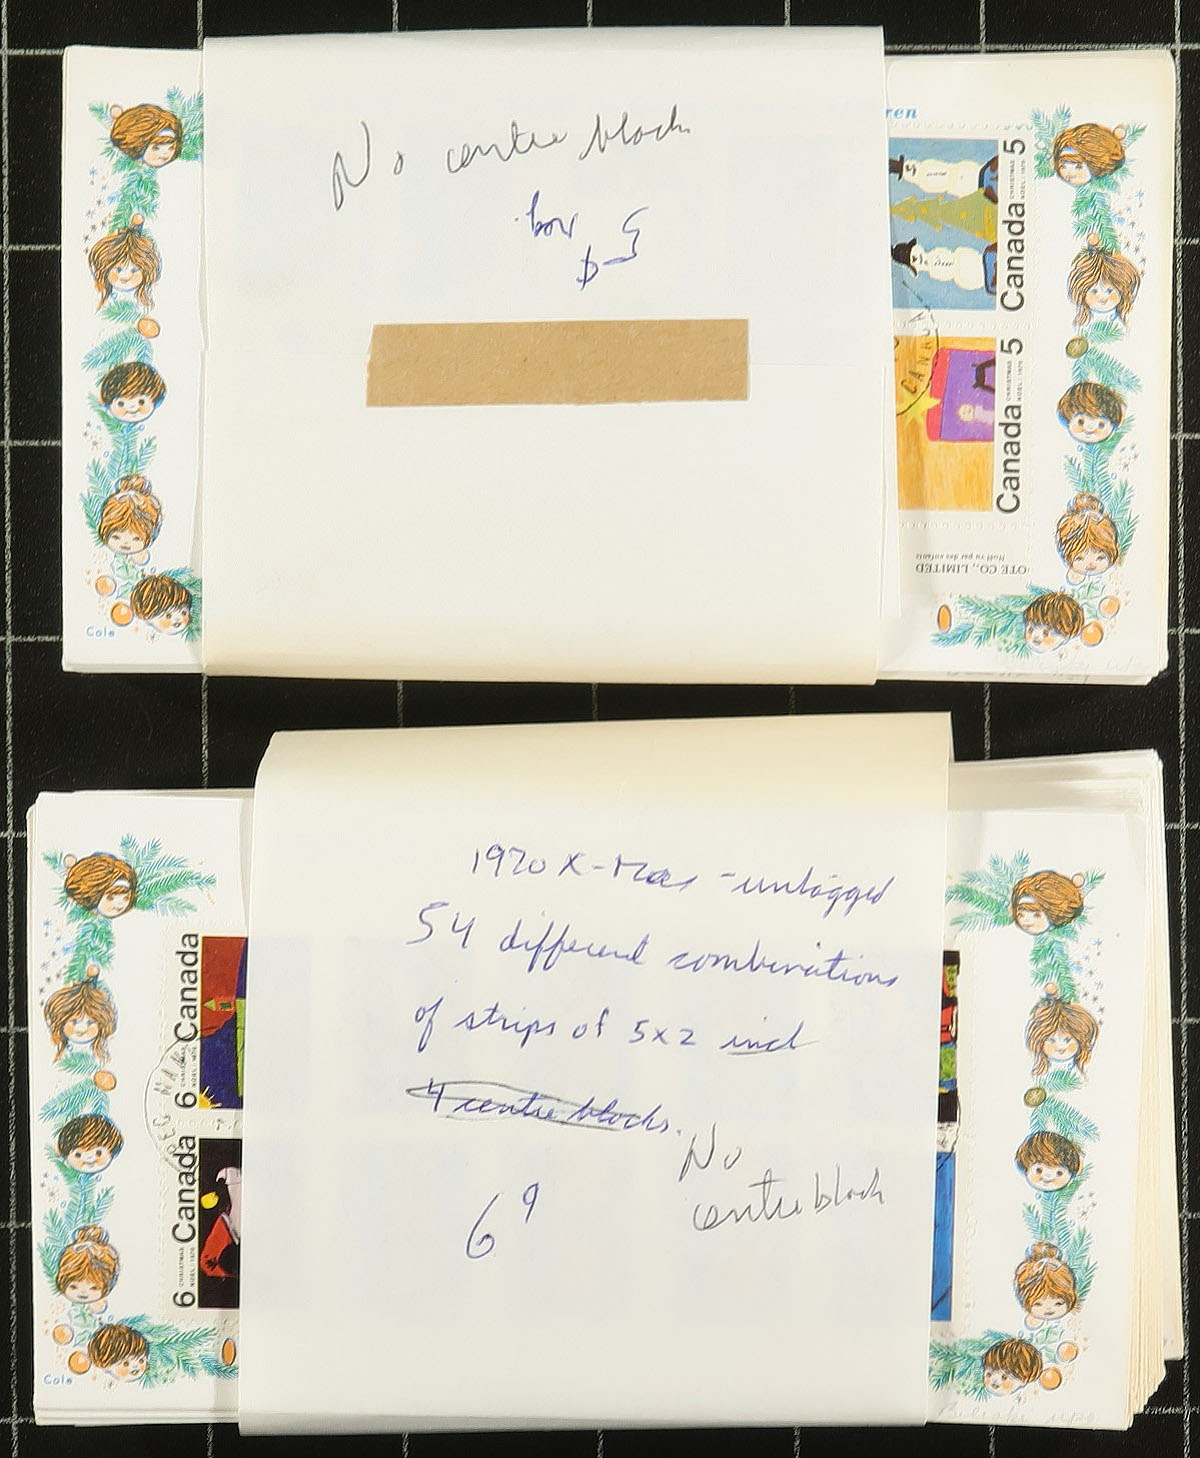 No centre block
box
5¢
ren
Canada 5
CHRISTMAS
NOËL | 1970
CANADA
Canada 5
CHRISTMAS
NOËL | 1970
Noël vu par des enfants
OTE CO., LIMITED
Cole
1970 X-Mas - untagged
54 different combinations
of strips of 5x2 incl
4 centre blocks.
No
centre block
6¢
6 Canada
CHRISTMAS
NOËL | 1970
6 Canada
CHRISTMAS
NOËL | 1970
Cole